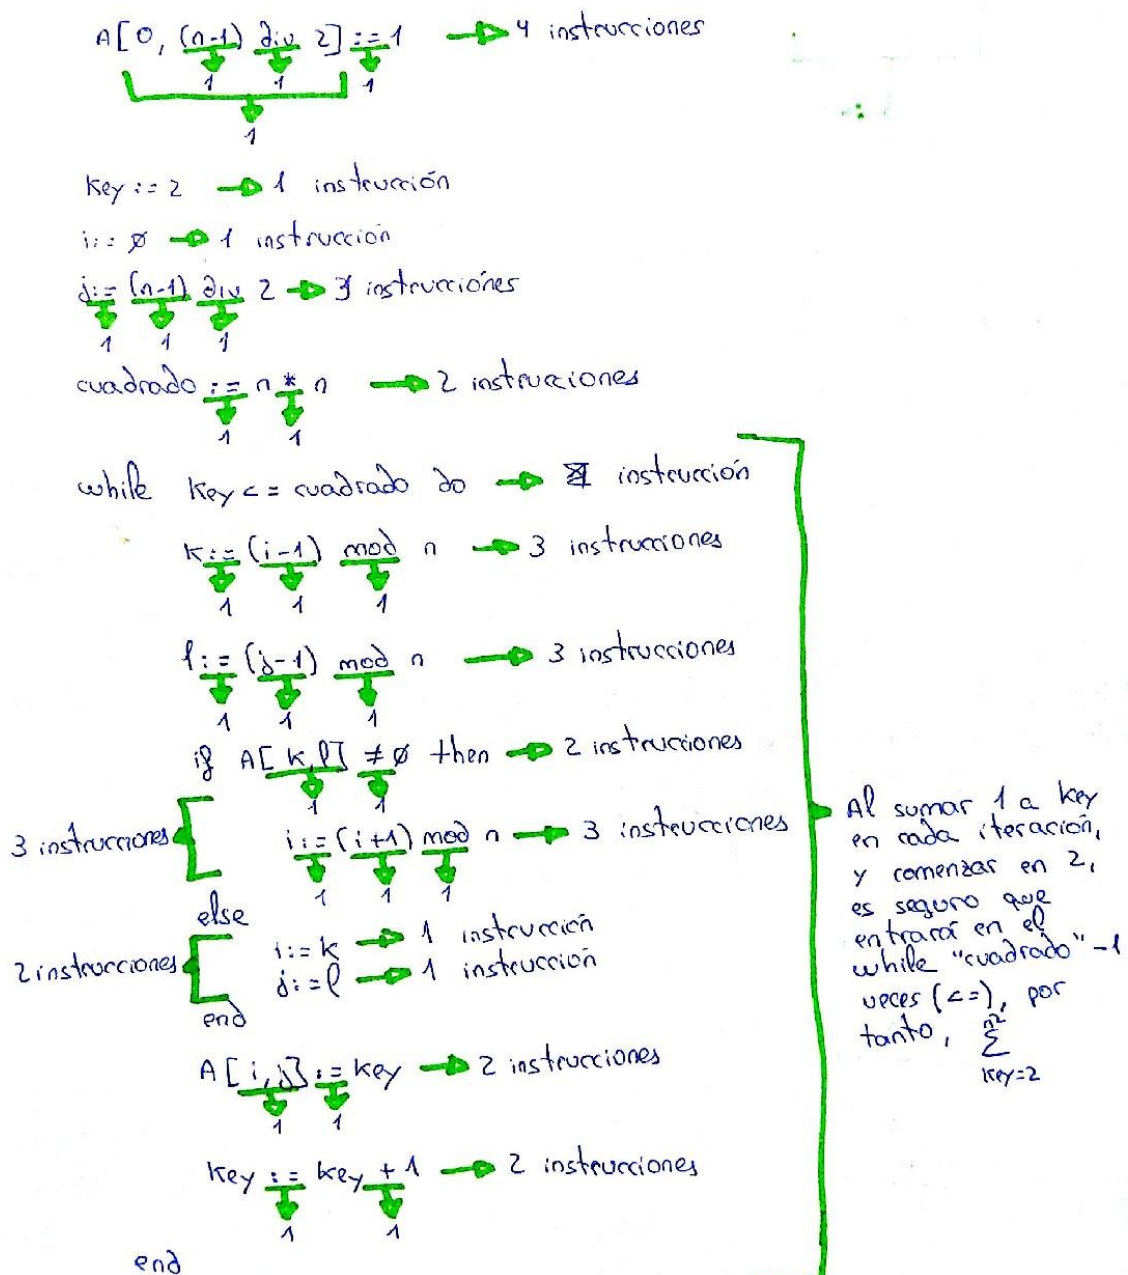 A[0, (n-1) div 2] := 1 → 4 instrucciones
1 1 1
1
key := 2 → 1 instrucción
i := ø → 1 instrucción
j := (n-1) div 2 → 3 instrucciones
1 1 1
cuadrado := n * n → 2 instrucciones
1 1
while key <= cuadrado do → instrucción
k := (i-1) mod n → 3 instrucciones
1 1 1
l := (j-1) mod n → 3 instrucciones
1 1 1
if A[k,l] ≠ ø then → 2 instrucciones
1 1
3 instrucciones
i := (i+1) mod n → 3 instrucciones
1 1 1
else
2 instrucciones
i := k → 1 instrucción
j := l → 1 instrucción
end
A[i,j] := key → 2 instrucciones
1 1
key := key + 1 → 2 instrucciones
1 1
end
Al sumar 1 a key
en cada iteración,
y comenzar en 2,
es seguro que
entrará en el
while "cuadrado" -1
veces (<=), por
tanto, n²
Σ
key=2